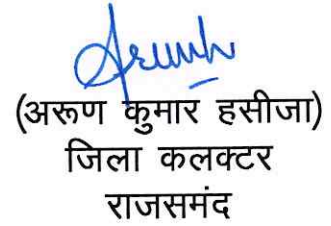 (अरूण कुमार हसीजा)
जिला कलक्टर
राजसमंद